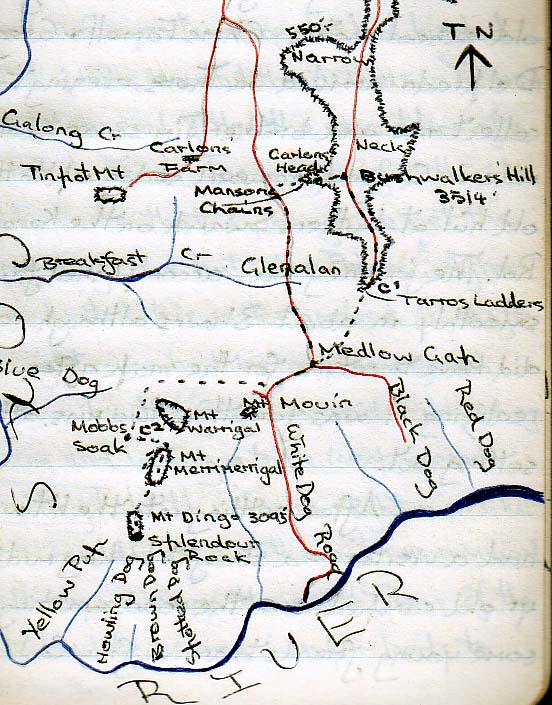 550'
Narrow
TN
Galong Cr
Carlons
Farm
Carlons
Head
Necks
Tinpot Mt
Mansons
Chains
Bushwalkers' Hill
3514'
Breakfast Cr
Glenalan
C1
Tarros Ladders
Medlow Gap
Blue Dog
Mt Mouin
Black Dog
Red Dog
Mobbs
Soak
C2
Mt
Warrigal
Mt
Merrimerrigal
White Dog
Road
Mt Dingo 3095'
Splendour
Rock
S
Yellow Pup
Howling Dog
Brown Dog
RIVER